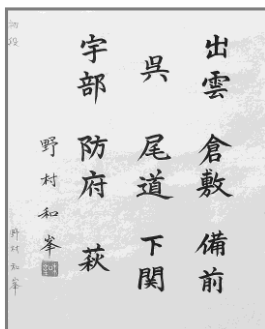 出雲 倉敷 備前
呉 尾道 下関
宇部 防府 萩
野村和峯
初段
野村和峯